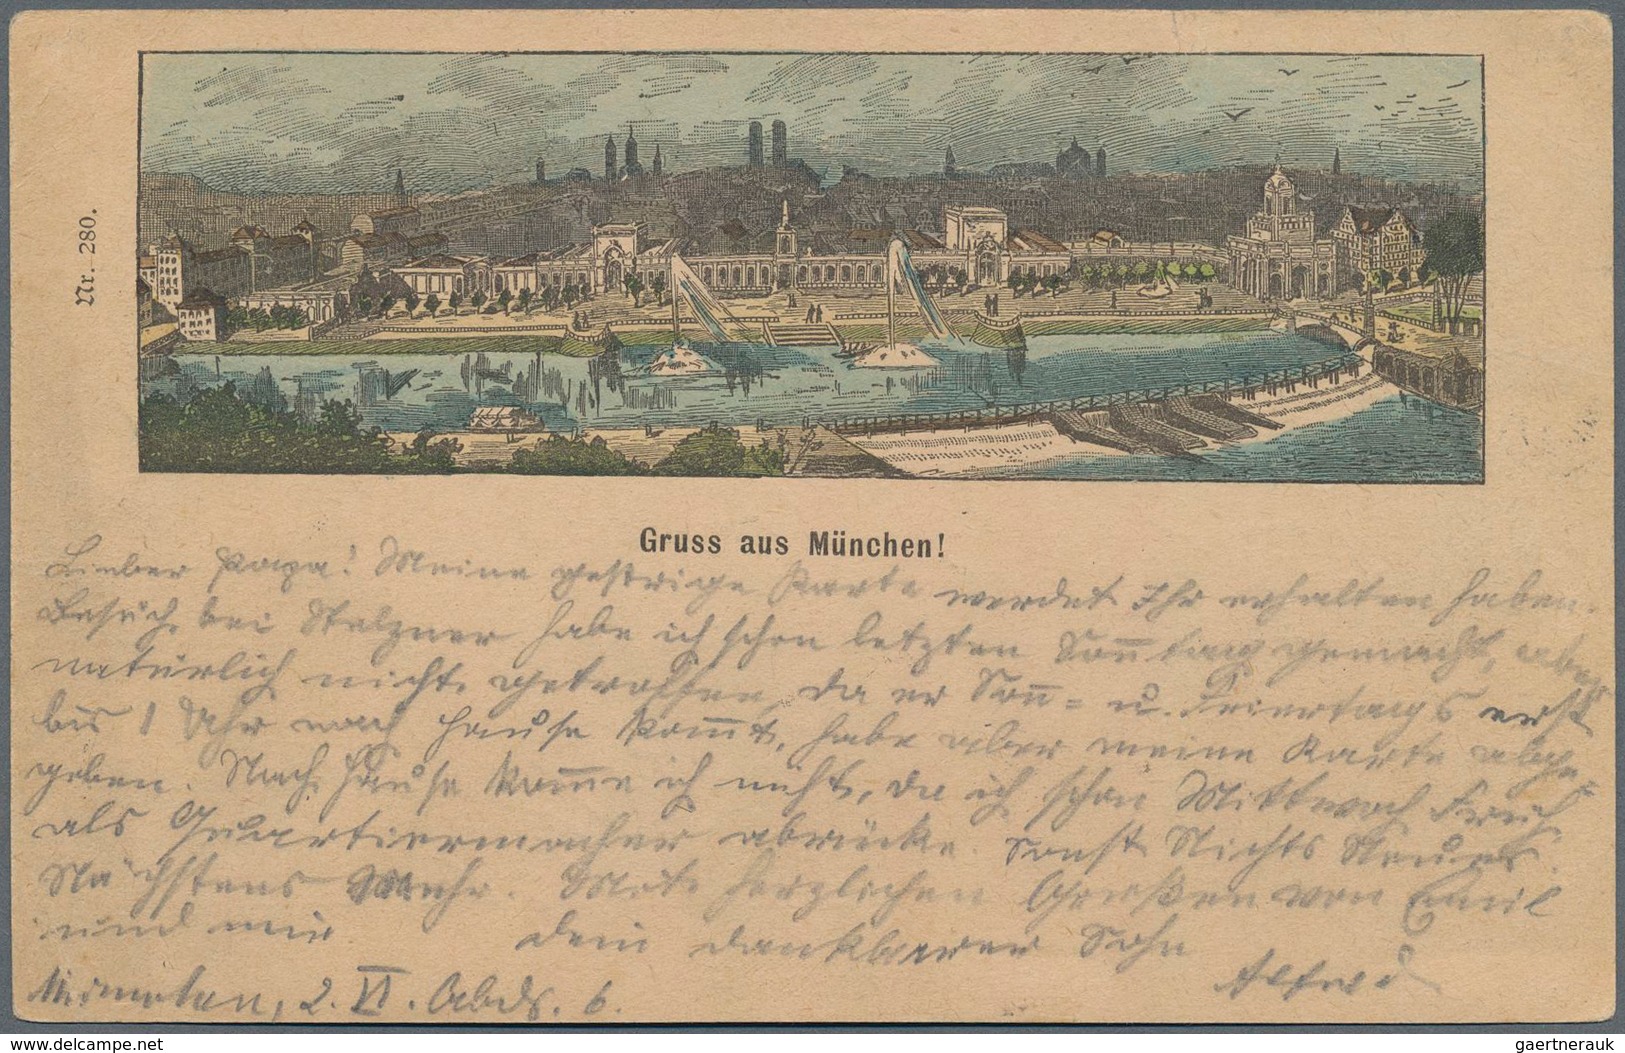 Nr. 280.
Gruss aus München!
Lieber Papa! Meine gestrige Karte werdet Ihr erhalten haben.
Besuch bei Stelzner habe ich schon letzten Soñtag gemacht, aber
natürlich nicht getroffen, da er Soñ= u. Feiertags erst
bis 1 Uhr nach Hause kom̄t, habe aber meine Karte abge-
geben. Nach Hause kom̄e ich nicht, da ich schon Mittwoch Früh
als Quartiermacher abrücke. Sonst Nichts Neues.
Nächstens Mehr. Mit herzlichen Grüßen von Emil
und mir dein dankbarer Sohn
Alfred
2. VI. Abds. 6.
delcampe.net
gaertnerauk